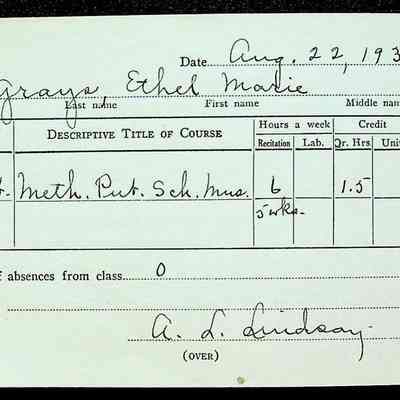 Date Aug. 22, 193
Grays, Ethel Marie
Last name First name Middle nam
Descriptive Title of Course Hours a week Credit
Recitation Lab. Qr. Hrs Uni
Meth. Put. Sch. Mus. 6 1.5
5 wks.
f absences from class 0
A. L. Lindsay
(OVER)